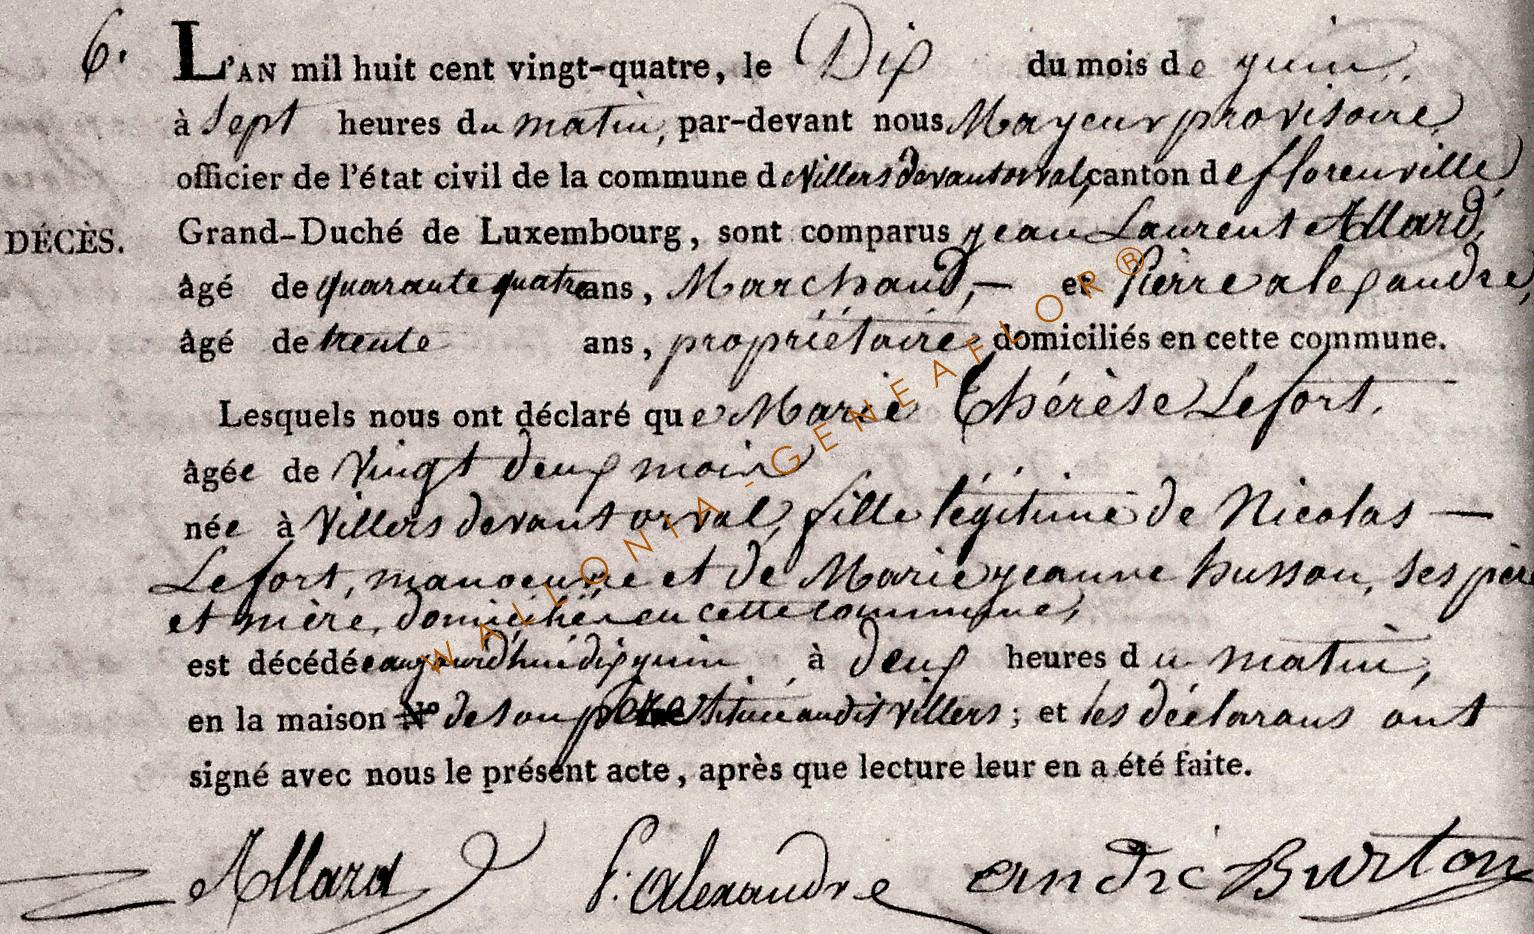 6. L'AN mil huit cent vingt-quatre, le Dix du mois de juin,
à Sept heures du matin, par-devant nous Mayeur provisoire,
officier de l'état civil de la commune de Villers devant orval, canton de florenville,
DÉCÈS. Grand-Duché de Luxembourg, sont comparus jean Laurent Allard,
âgé de quarante quatre ans, Marchand, — et Pierre alexandre,
âgé de trente ans, propriétaire, domiciliés en cette commune.
Lesquels nous ont déclaré que Marie Thérèse Lefort,
âgée de Vingt deux mois
née à Villers devant orval, fille légitime de Nicolas —
Lefort, manoeuvre et de Marie jeanne husson, ses père
et mère, domiciliés en cette commune,
est décédée aujourd'hui dix juin à deux heures du matin,
en la maison N° de son père située audit Villers ; et les déclarans ont
signé avec nous le présent acte, après que lecture leur en a été faite.
Allard P. Alexandre andré Burton
WALLONIA-GENEAFLOR®